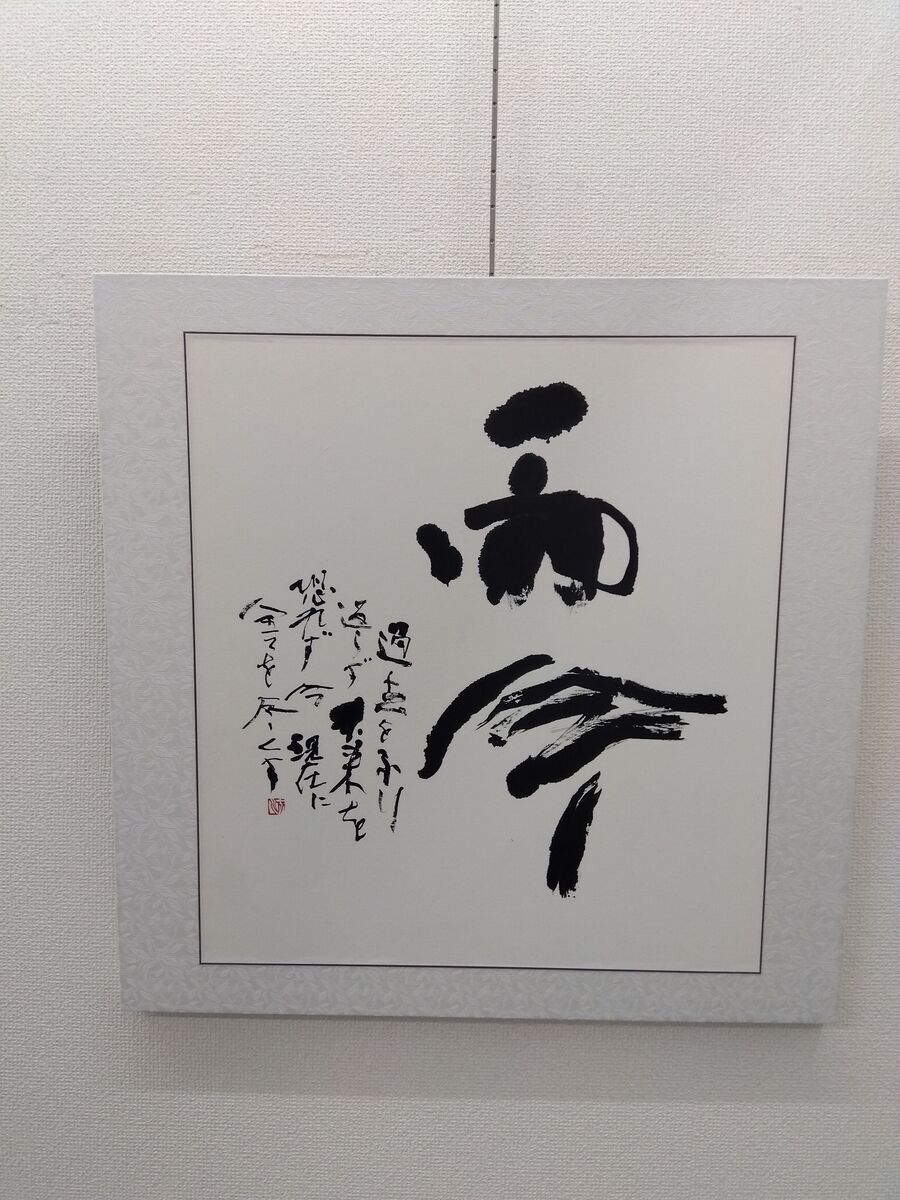 而今
過去をふり
返らず未来を
恐れず今現在に
全てを尽くす